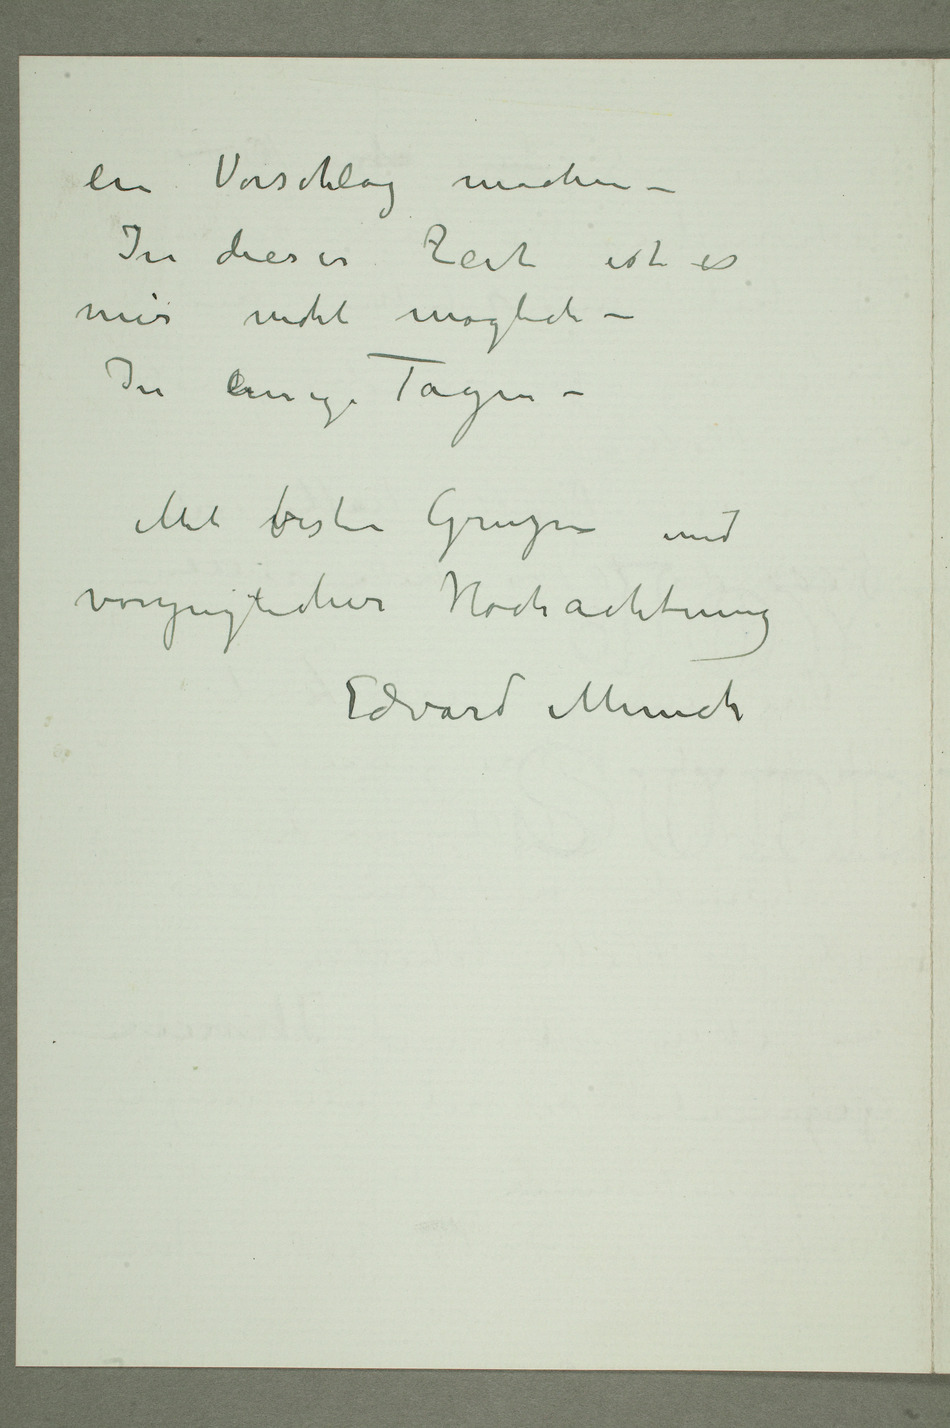 ein Vorschlag machen –
In dieser Zeit ist es
mir nicht möglich –
In einige Tagen –
Mit besten Gruzen und
vorzuglicher Hochachtung
Edvard Munch